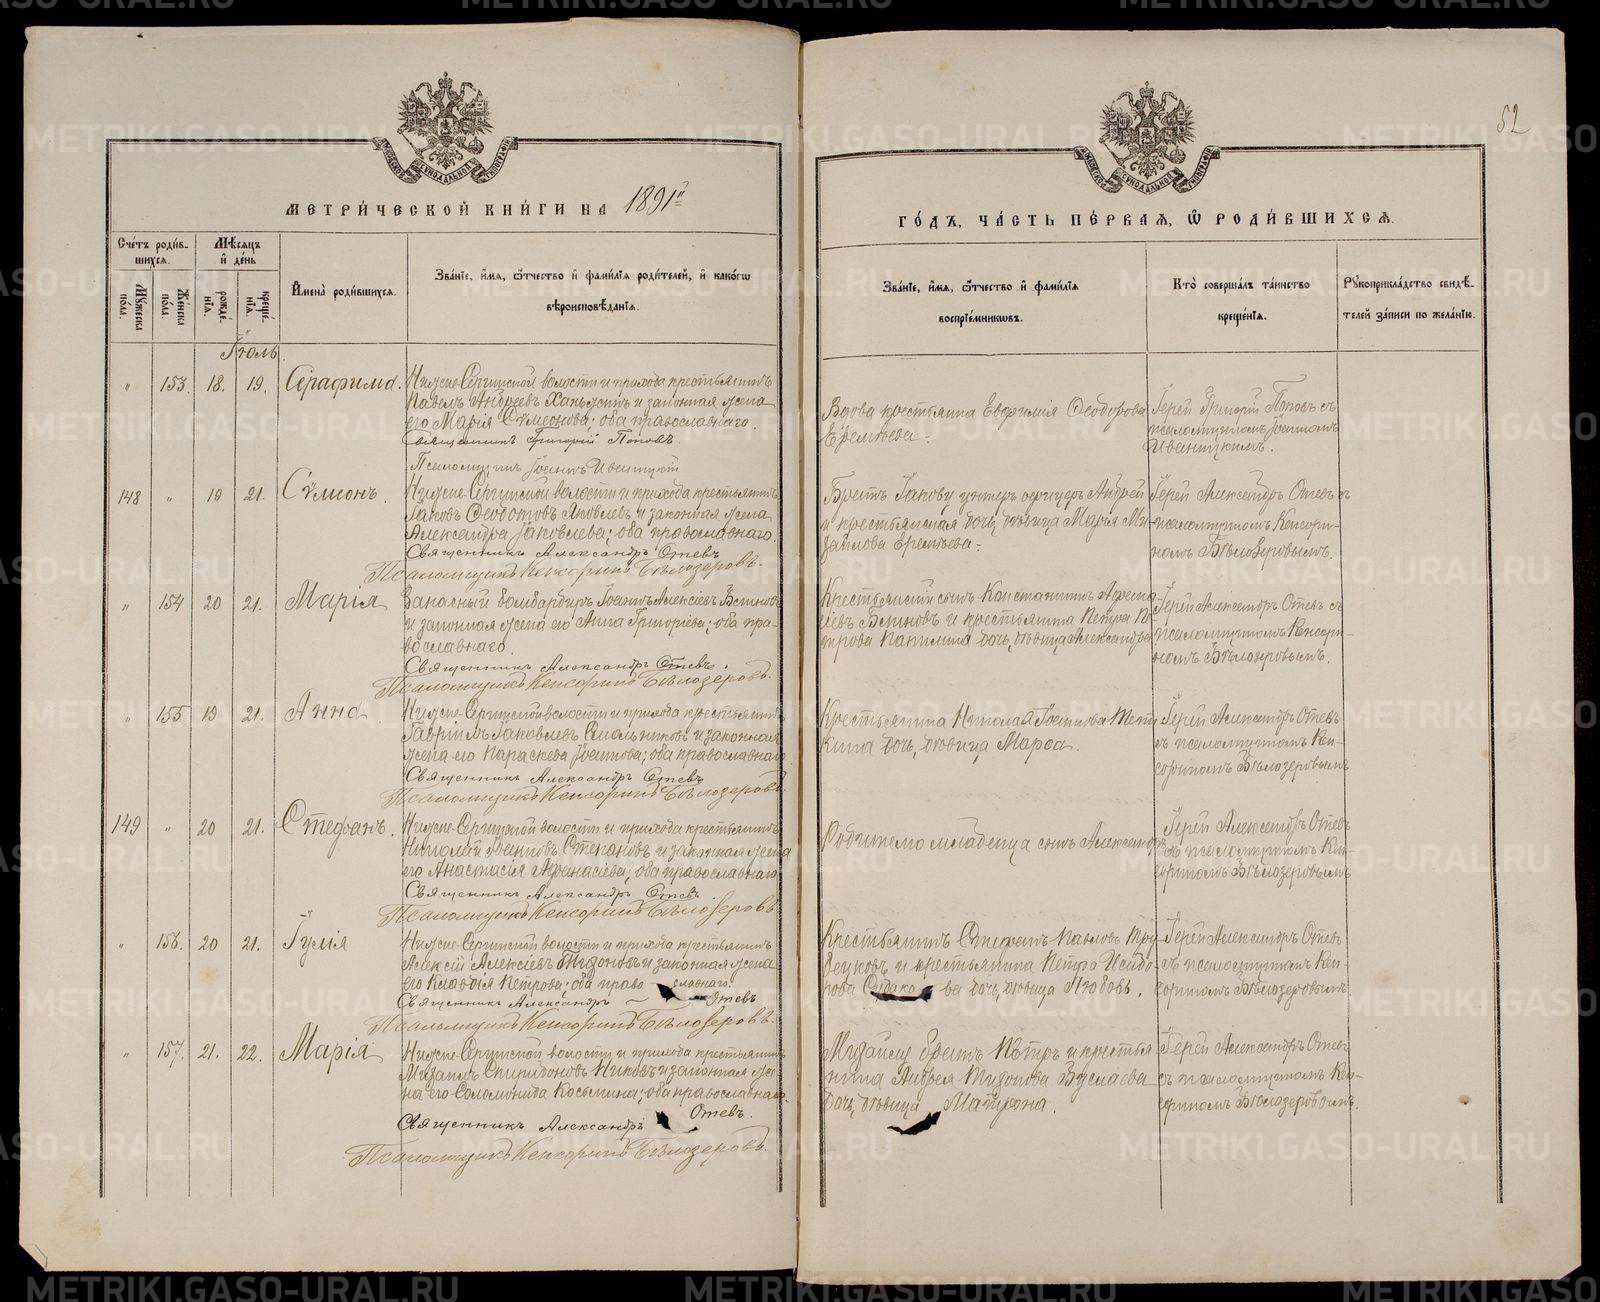 52
МЕТРИ́ЧЕСКОЙ КНИ́ГИ НА 1891й
ГО́ДЪ, ЧА́СТЬ ПЕ́РВАЯ, Ѡ РОДИ́ВШИХСЯ.
Сче́тъ роди́в-
шихся.
Мꙋжеска по́ла.
Же́нска по́ла.
Мѣ́сяцъ
и де́нь
рожде́-
нїя.
креще́-
нїя.
И҆мена̀ роди́вшихся.
Зва́нїе, и҆́мя, ѻ҆́тчество и҆ фами́лїя роди́телей, и҆ како́гѡ
вѣроисповѣ́данїя.
Зва́нїе, и҆́мя, ѻ҆́тчество и҆ фами́лїя
воспрїе́мникѡвъ.
Кто̀ соверша́лъ та́инство
креще́нїя.
Рꙋкоприкла́дство свидѣ́-
телей за́писи по жела́нїю.
Іюль.
" 153. 18. 19. Серафима.
Нижне-Сергинской волости и прихода крестьянинъ
Павелъ Андреевъ и законная жена
его Марія Сѵмеонова; оба православнаго.
Священникъ Григорій Поповъ.
Псаломщикъ Іоаннъ Иваницкій
Вдова крестьянка Евфимія Ѳеодорова
Ерентьева.
Іерей Григорій Поповъ съ
псаломщикомъ Іоанномъ
Иваницкимъ.
148 " 19 21. Сѵмеонъ.
Нижне-Сергинской волости и прихода крестьянинъ
Іаковъ Ѳеодотовъ Яковлевъ и законная жена
Александра Іаковлева; оба православнаго.
Священникъ Александръ Отевъ
Псаломщикъ Кенсоринъ Бѣлозеровъ.
Братъ Іакову унтеръ офицеръ Андрей
и крестьянская дочь, дѣвица Марія Ми-
хаилова
Іерей Александръ Отевъ съ
псаломщикомъ Кенсори-
номъ Бѣлозеровымъ.
" 154 20 21. Марія
Запасный бомбардиръ Іоаннъ Алексіевъ Блиновъ
и законная жена его Анна Григоріева; оба пра-
вославнаго.
Священникъ Александръ Отевъ.
Псаломщикъ Кенсоринъ Бѣлозеровъ.
Крестьянскій сынъ Константинъ
Блиновъ и крестьянина Петра Пе-
трова дочь, дѣвица Александра
Іерей Александръ Отевъ съ
псаломщикомъ Кенсори-
номъ Бѣлозеровымъ.
" 155 19 21. Анна.
Нижне-Сергинской волости и прихода крестьянинъ
Гавріилъ Іаковлевъ Смольниковъ и законная
жена его Параскева Іоаннова; оба православнаго.
Священникъ Александръ Отевъ
Псаломщикъ Кенсоринъ Бѣлозеровъ.
Крестьянина Николая Іоаннова
дочь, дѣвица Марѳа.
Іерей Александръ Отевъ
съ псаломщикомъ Кен-
сориномъ Бѣлозеровымъ
149 " 20 21. Стефанъ.
Нижне-Сергинской волости и прихода крестьянинъ
Николай Іоанновъ Степановъ и законная жена
его Анастасія Аѳанасіева; оба православнаго.
Священникъ Александръ Отевъ.
Псаломщикъ Кенсоринъ Бѣлозеровъ.
Родителю младенца сынъ Александръ
Іерей Александръ Отевъ
съ псаломщикомъ Кен-
сориномъ Бѣлозеровымъ
" 156. 20 21. Іулія
Нижне-Сергинской волости и прихода крестьянинъ
Алексій Алексіевъ и законная жена
его Клавдія Петрова; оба православнаго.
Священникъ Александръ Отевъ
Псаломщикъ Кенсоринъ Бѣлозеровъ.
Крестьянинъ Стефанъ Павловъ Тру-
беуковъ и крестьянина Петра Исидо-
рова дочь, дѣвица Любовь.
Іерей Александръ Отевъ
съ псаломщикомъ Кен-
сориномъ Бѣлозеровымъ
" 157. 21. 22. Марія
Нижне-Сергинской волости и прихода крестьянинъ
Михаилъ Спиридоновъ и законная же-
на его Соломонида Косьмина; оба православнаго.
Священникъ Александръ Отевъ.
Псаломщикъ Кенсоринъ Бѣлозеровъ.
братъ Петръ и крестья-
нина Андрея Тихонова Буслаева
дочь, дѣвица Матрона.
Іерей Александръ Отевъ
съ псаломщикомъ Кен-
сориномъ Бѣлозеровымъ.
METRIKI.GASO-URAL.RU